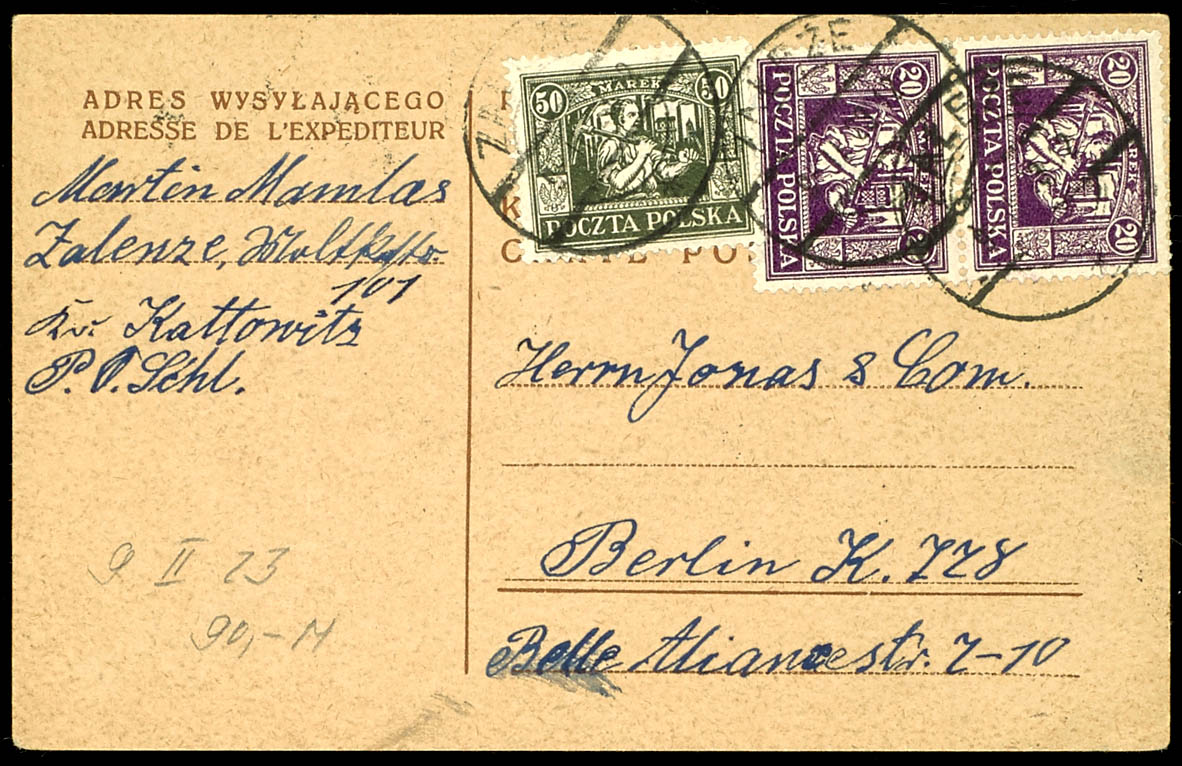 ADRES WYSYŁAJĄCEGO
ADRESSE DE L'EXPEDITEUR
Martin Mamlas
Zalenze, Moltkestr.
101
Kr. Kattowitz
P. O. Schl.
50 MAREK 50
POCZTA POLSKA
20 20
POCZTA POLSKA
20 20
POCZTA POLSKA
ZAŁĘŻE
Herrn Jonas & Com.
Berlin K. 778
Belle Aliancestr. 7-10
9 II 23
90,- M